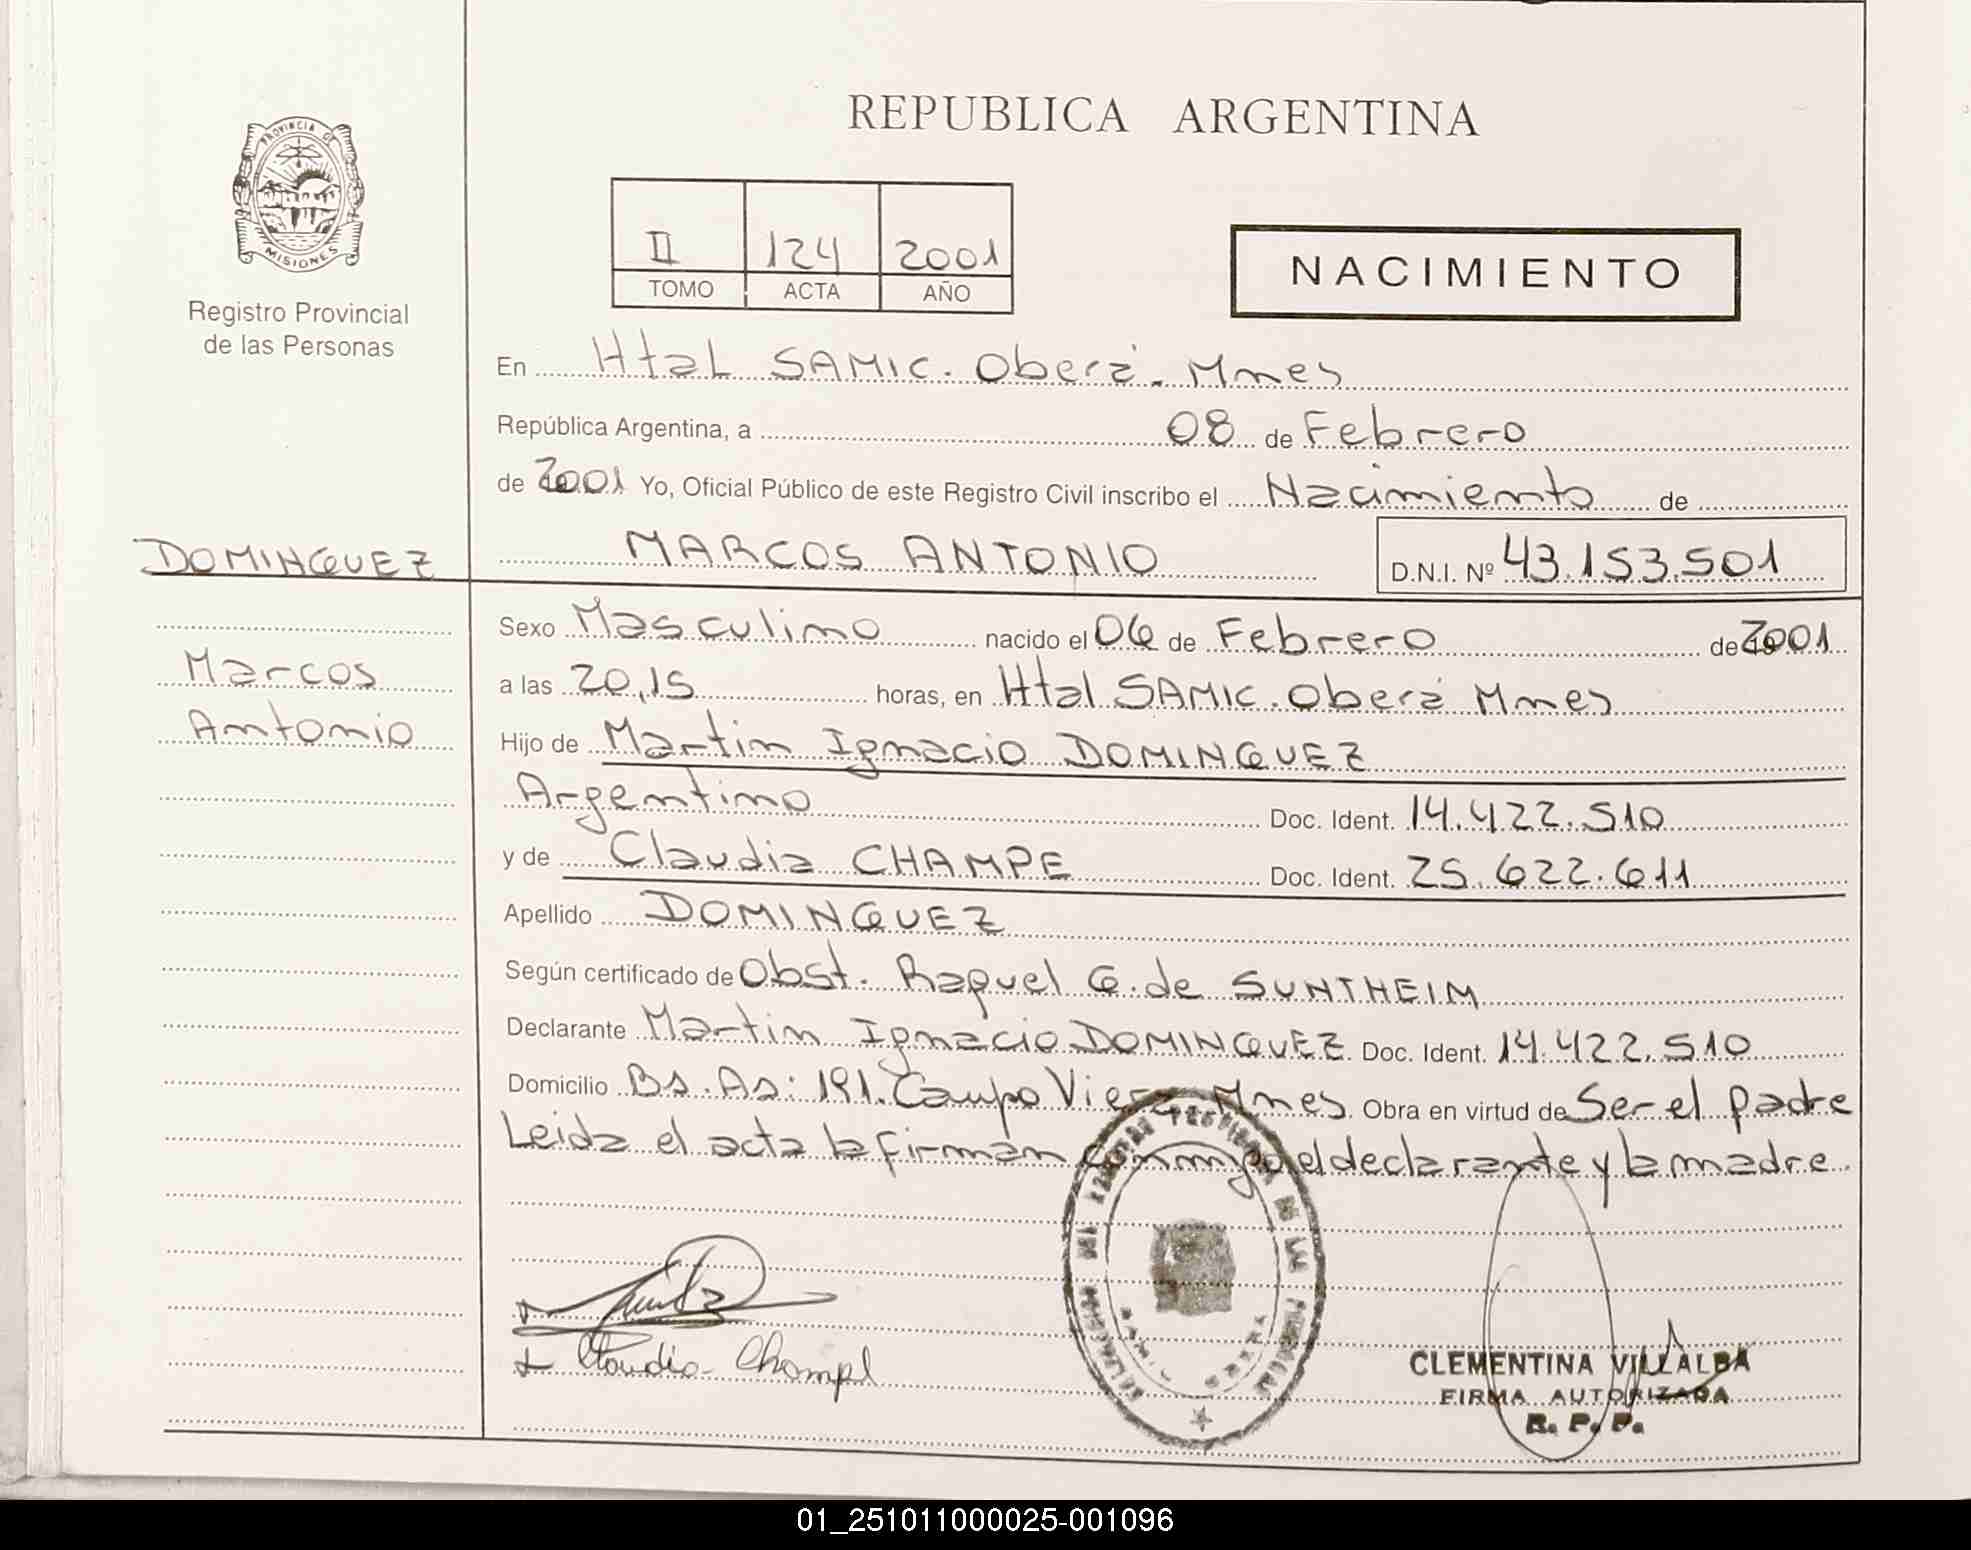 PROVINCIA DE
MISIONES
Registro Provincial
de las Personas
REPUBLICA ARGENTINA
II 124 2001
TOMO ACTA AÑO
NACIMIENTO
En Htal SAMIC. Oberá. Mnes
República Argentina, a 08 de Febrero
de 2001 Yo, Oficial Público de este Registro Civil inscribo el Nacimiento de
DOMINGUEZ MARCOS ANTONIO D.N.I. Nº 43.153.501
Sexo Masculino nacido el 06 de Febrero de 2001
Marcos
a las 20,15 horas, en Htal SAMIC. Oberá Mnes
Antonio
Hijo de Martin Ignacio DOMINGUEZ
Argentino Doc. Ident. 14.422.510
y de Claudia CHAMPE Doc. Ident. 25.622.611
Apellido DOMINGUEZ
Según certificado de Obst. Raquel G. de SUNTHEIM
Declarante Martin Ignacio DOMINGUEZ Doc. Ident. 14.422.510
Domicilio Bs. As: 191. Campo Viera Mnes. Obra en virtud de Ser el padre
Leida el acta la firman conmigo el declarante y la madre.
Claudia Champe
CLEMENTINA VILLALBA
FIRMA AUTORIZADA
R. P. P.
01_251011000025-001096